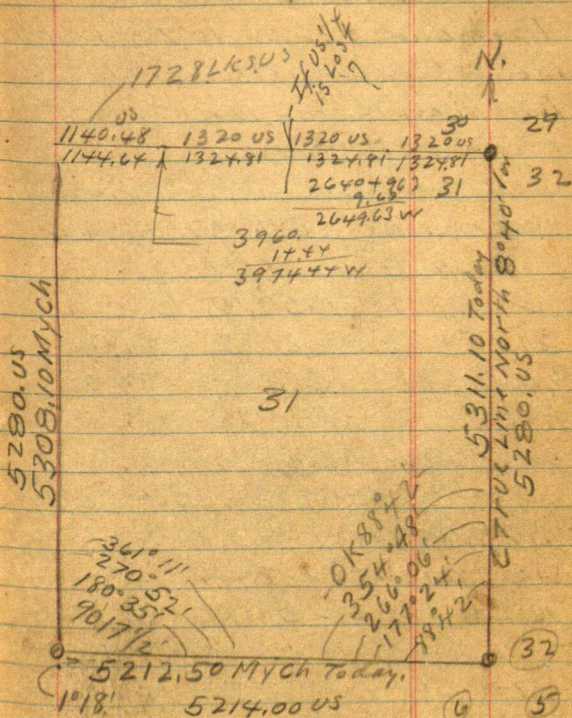 1728 LKS. US
If US 1/4
is Lost
?
N.
US
1140.48 1320 US 1320 US 1320 US
1144.64 1324.81 1324.81 1324.81
30 29
31 32
2640 + 963
9.63
2649.63 W
3960.
14.44
3974.44 W
5280. US
5308.10 MyCh
31
5311.10 Today
True Line North 8°40' 
5280. US
361° 11'
270° 52'
180° 35'
90 17 1/2'
OK 88° 42'
354° 48'
266° 06'
177° 24'
88° 42'
5212.50 MyCh Today.
1° 18'
5214.00 US
32
6 5